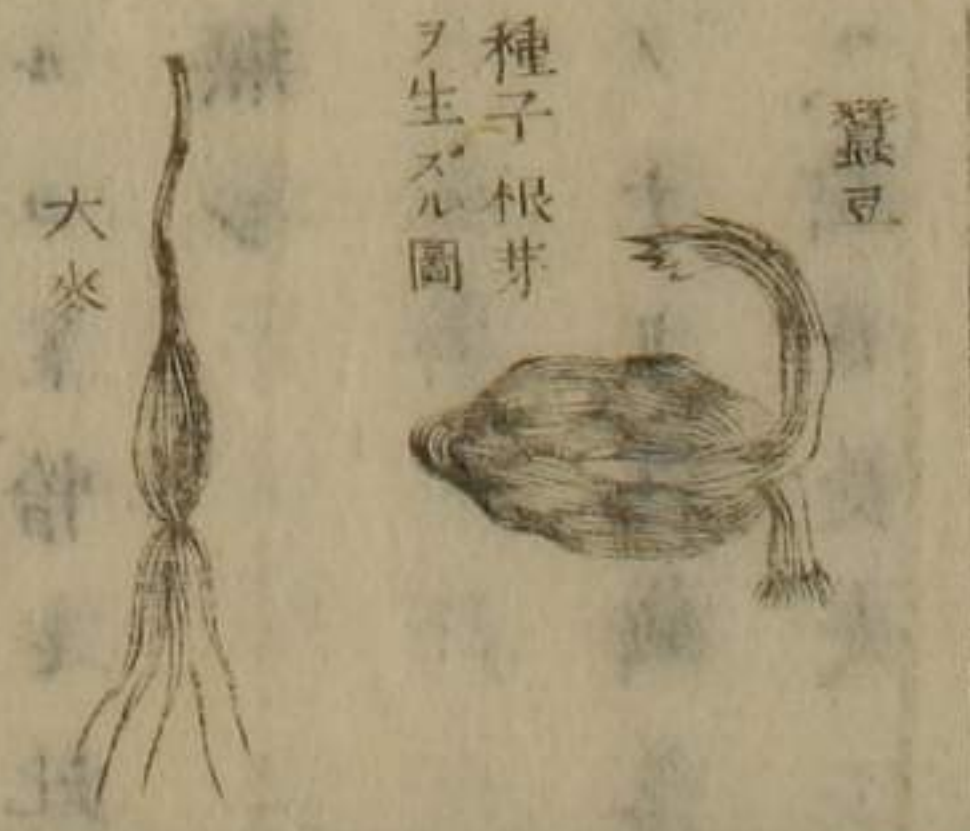 蠶豆
種子根芽
ヲ生ズル圖
大麥